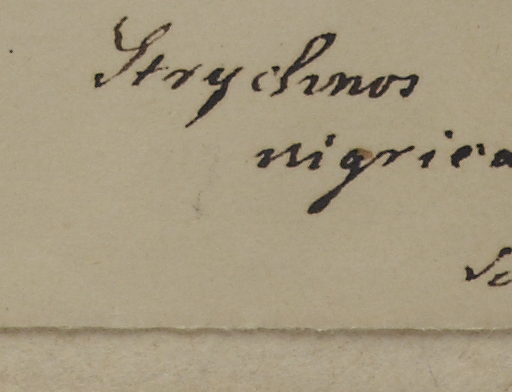 Strychnos
nigrica